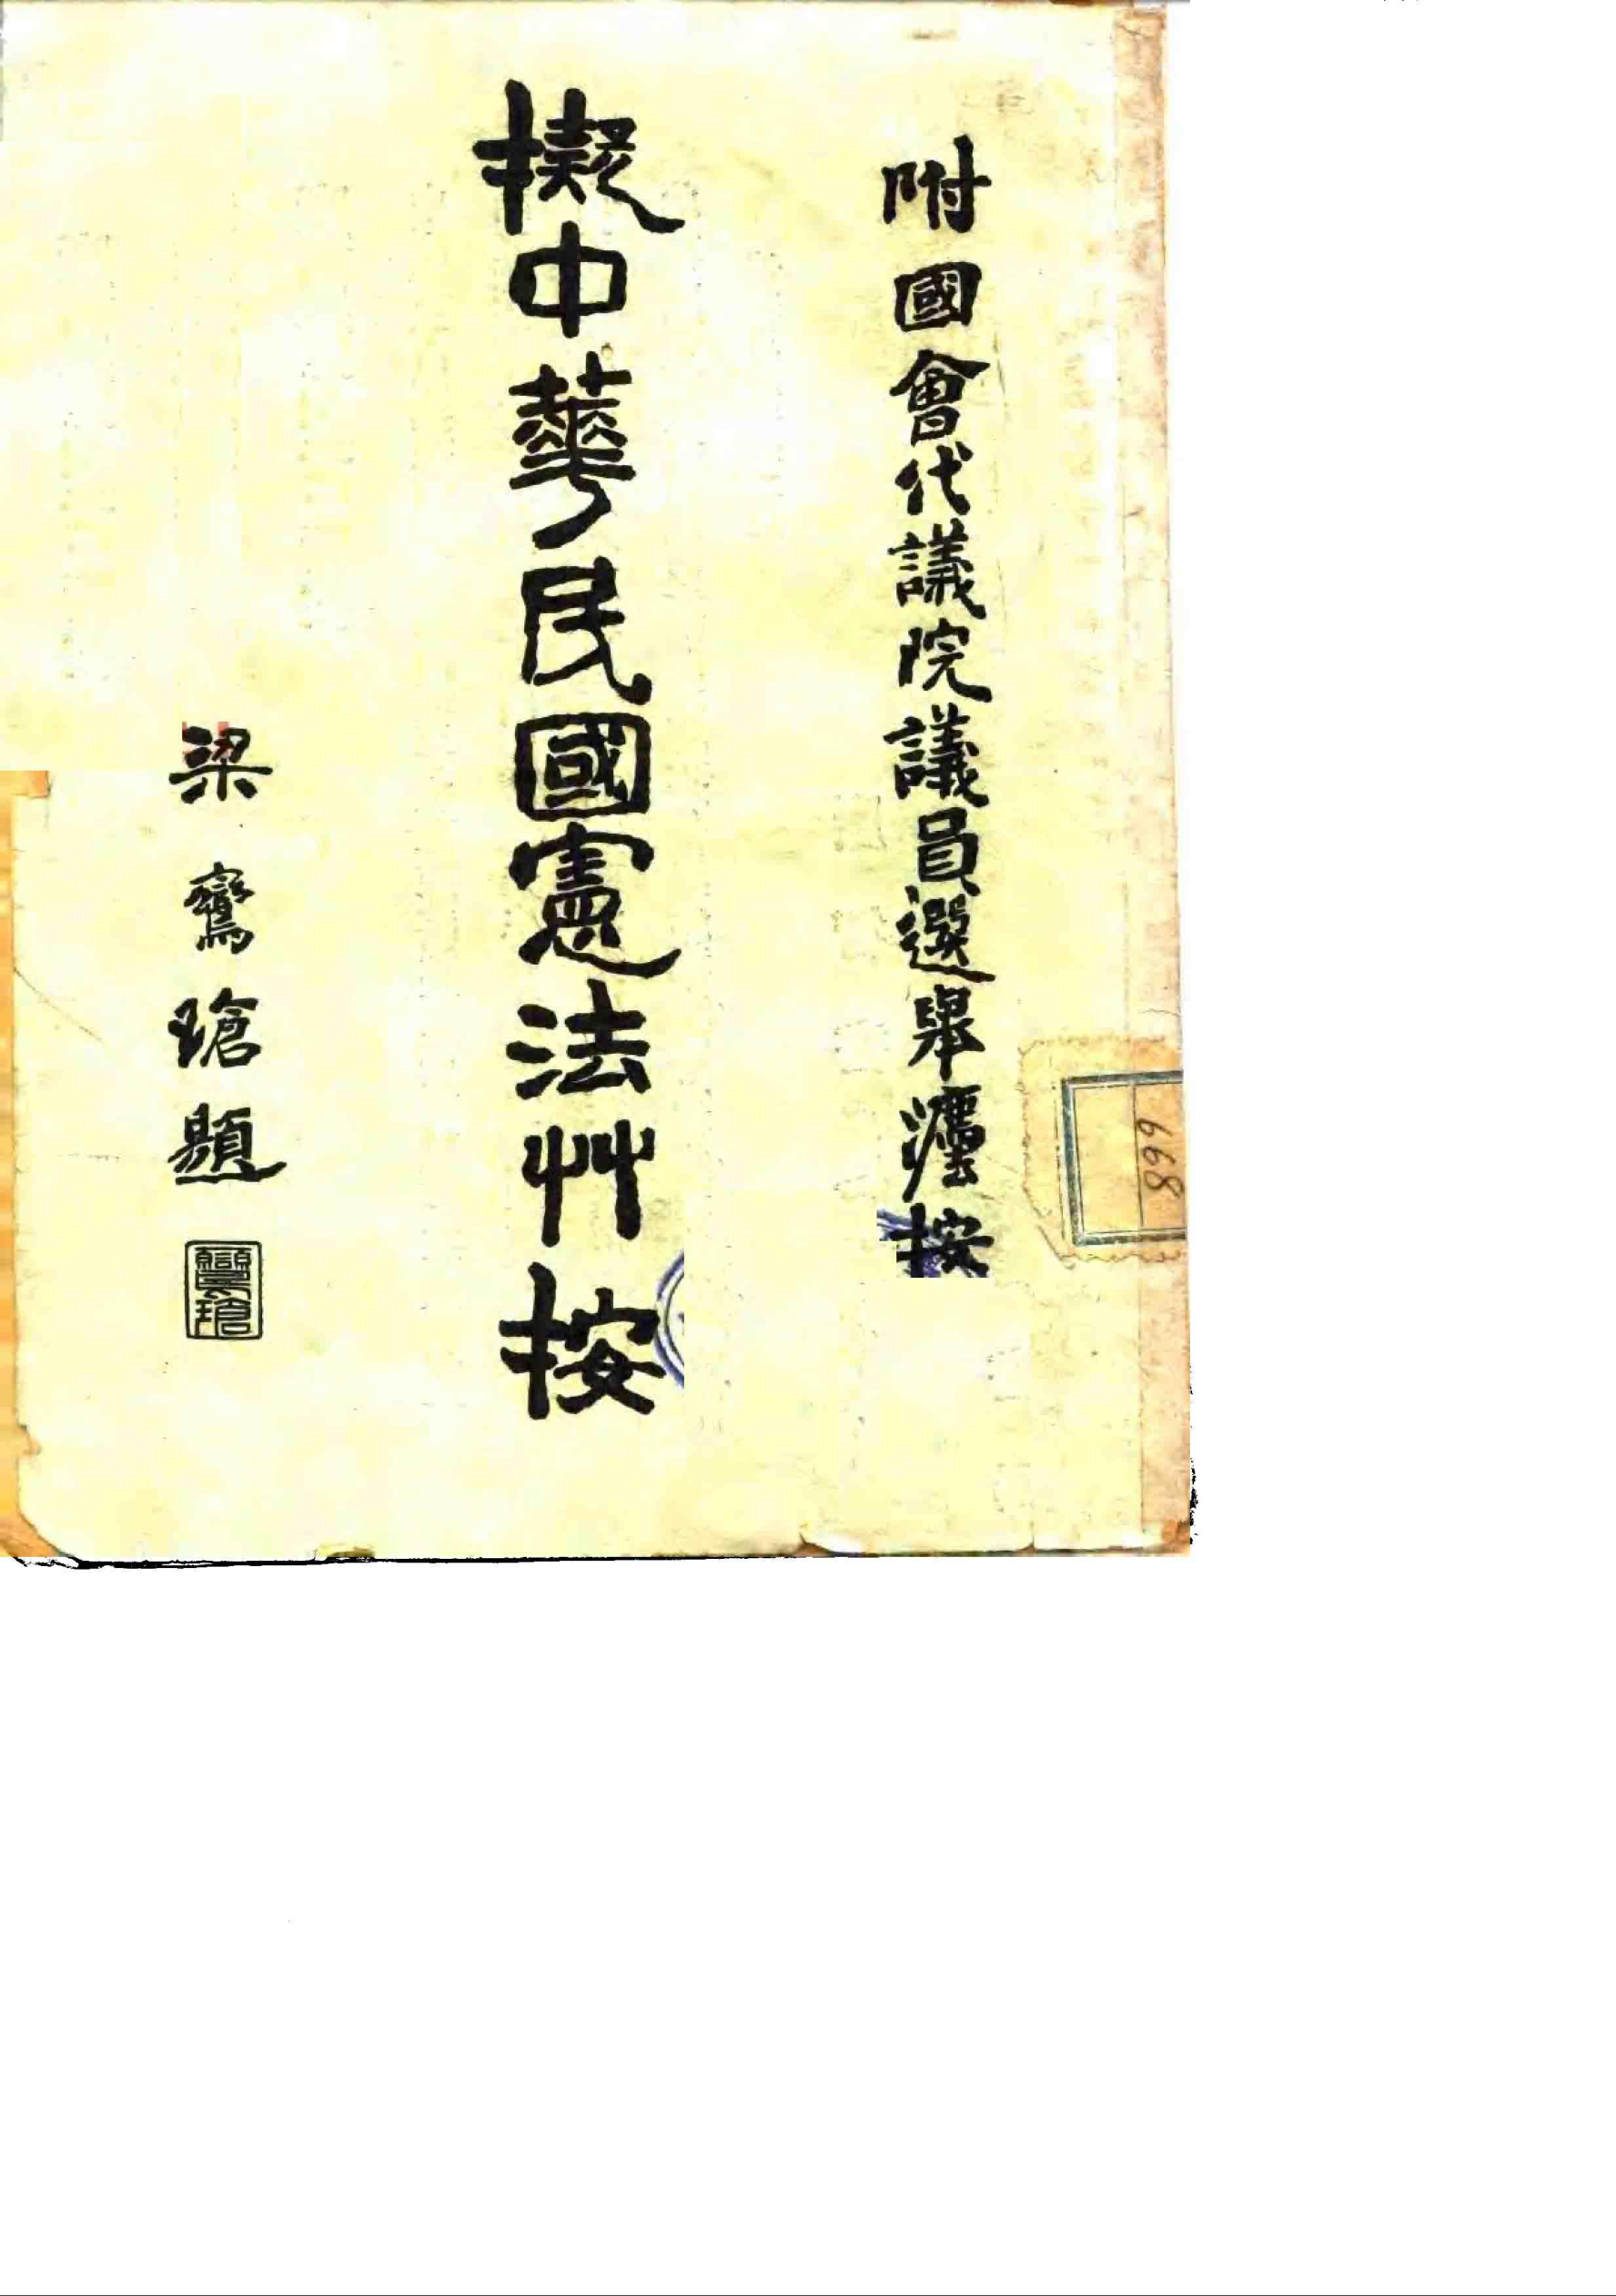 附國會代議院議員選舉灋按
擬中華民國憲法艸按
梁鸞瑲題
鸞瑲
668